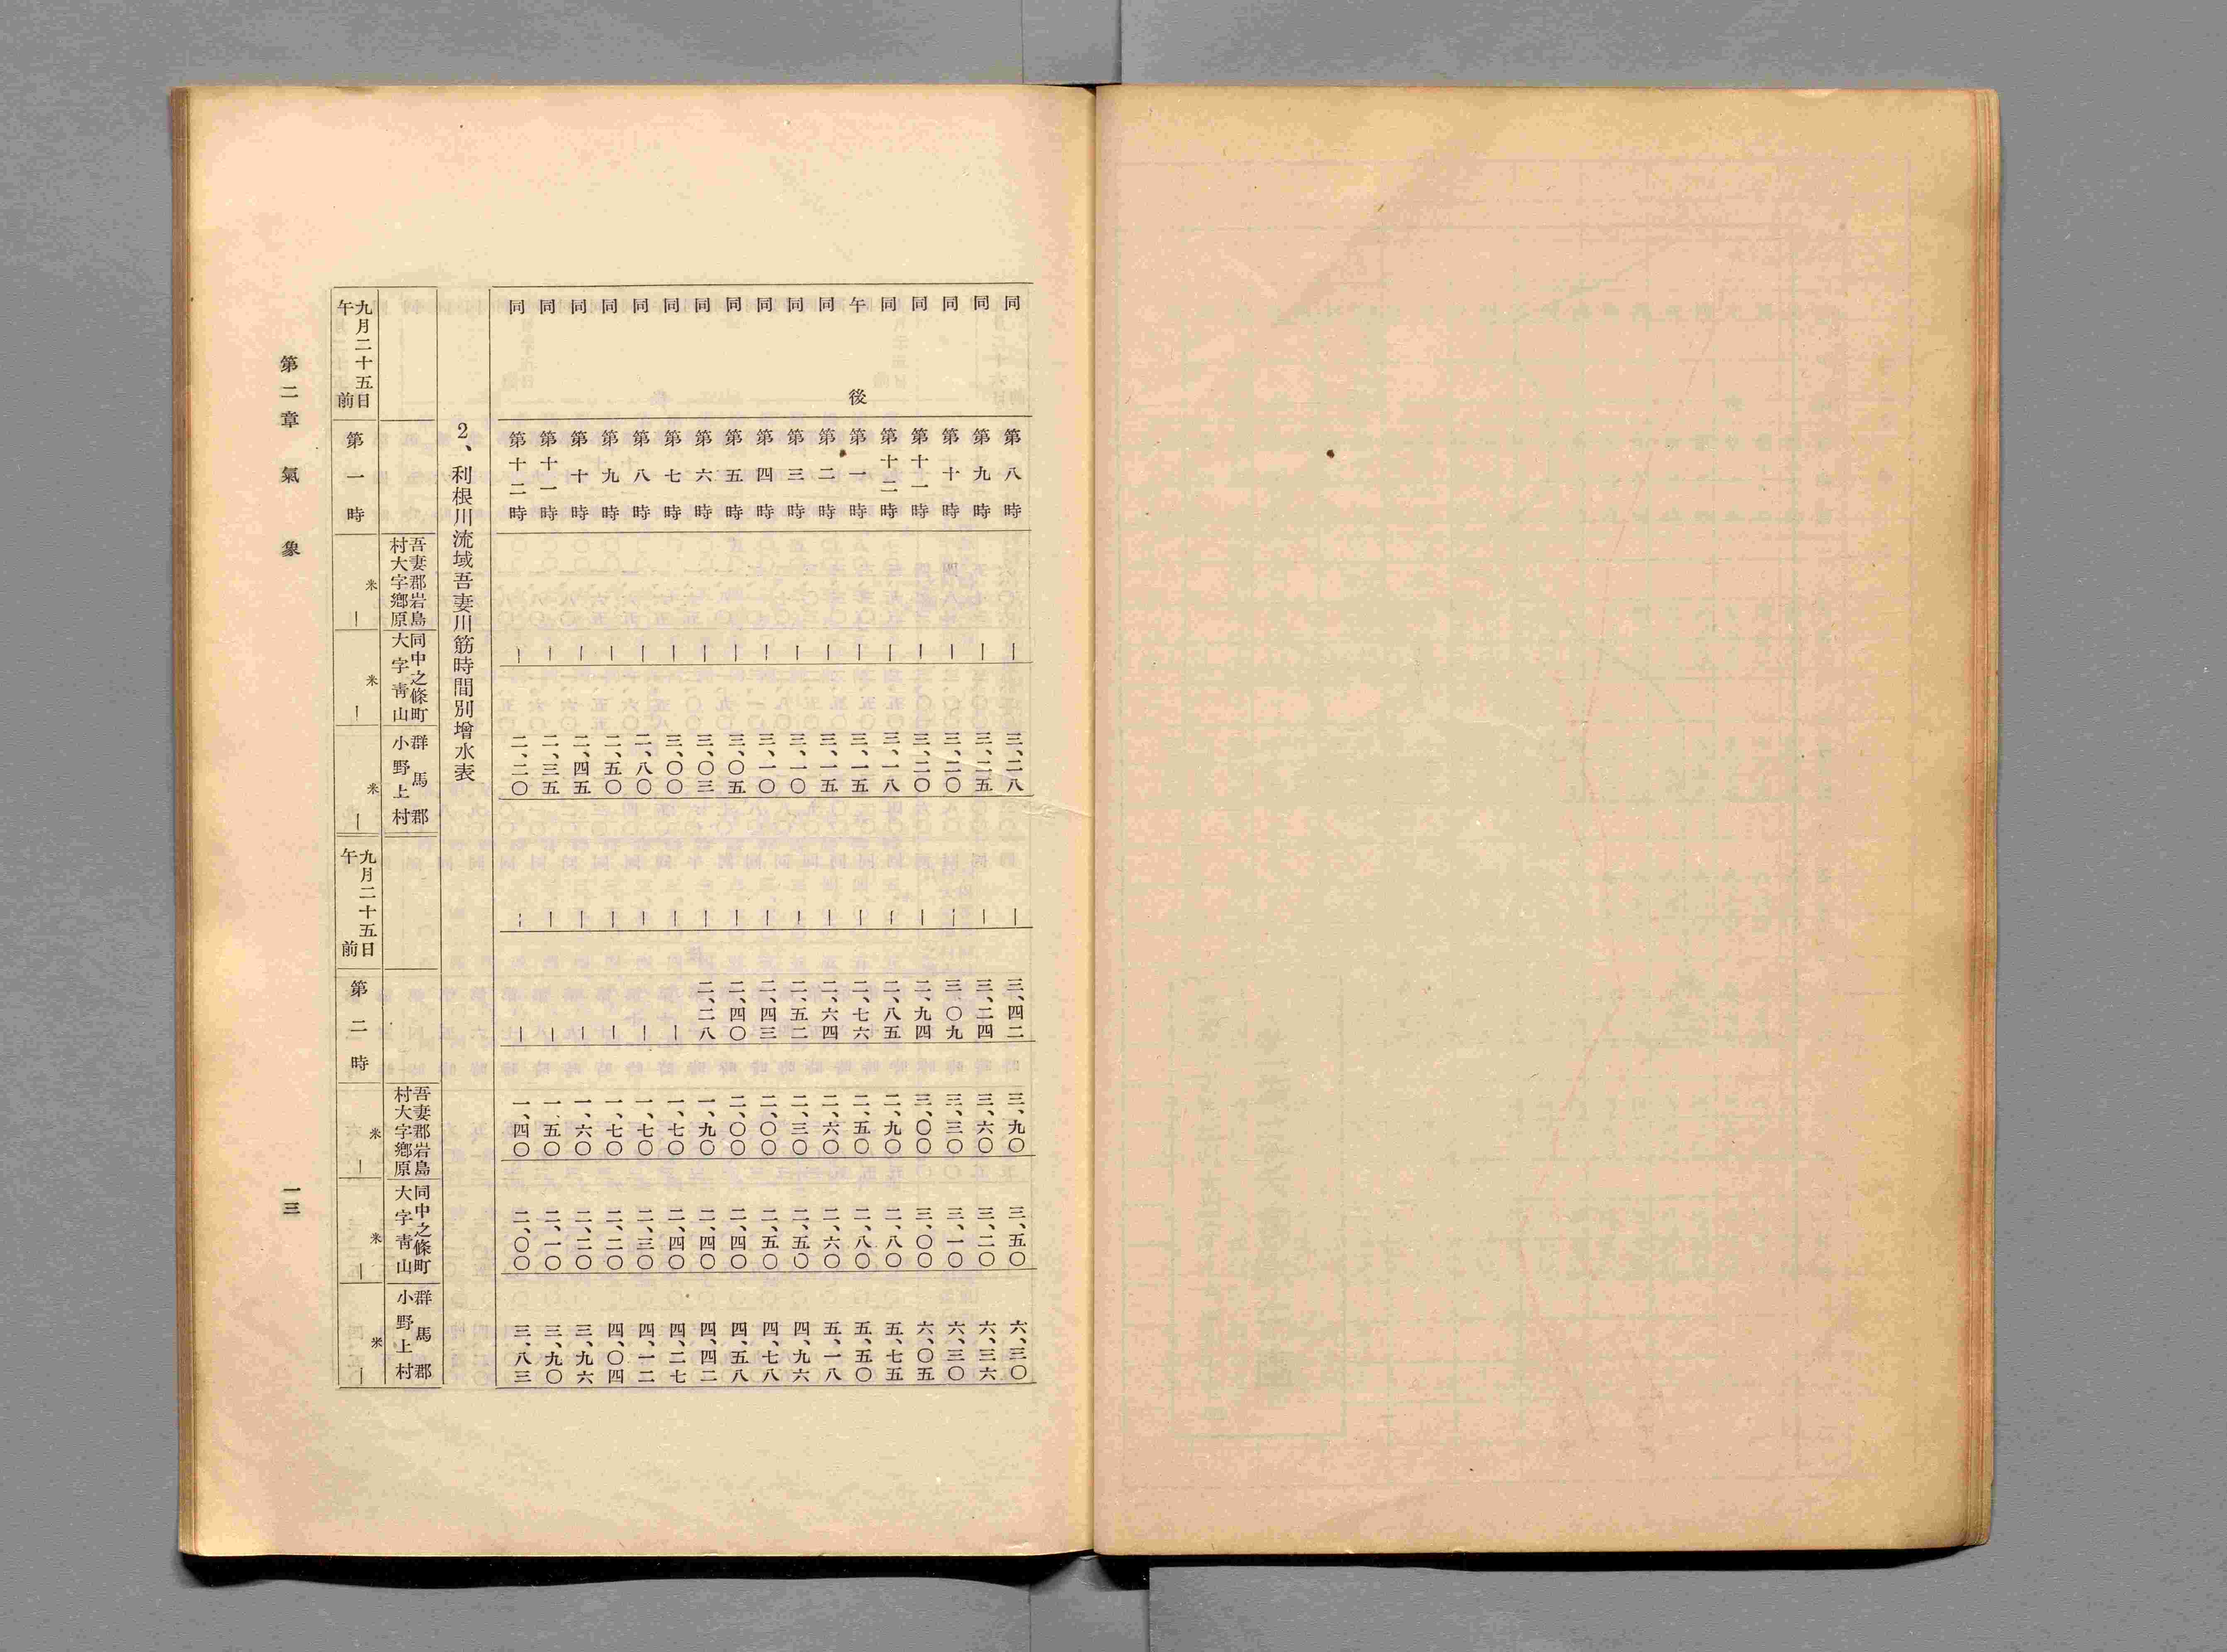 同 第八時 ー 三、二八 ー 三、四二 三、九〇 三、五〇 六、三〇
同 第九時 ー 三、二五 ー 三、二四 三、六〇 三、二〇 六、三六
同 第十時 ー 三、二〇 ー 三、〇九 三、三〇 三、一〇 六、三〇
同 第十一時 ー 三、二〇 ー 二、九四 三、〇〇 三、〇〇 六、〇五
同 第十二時 ー 三、一八 ー 二、八五 二、九〇 二、八〇 五、七五
午後 第一時 ー 三、一五 ー 二、七六 二、五〇 二、八〇 五、五〇
同 第二時 ー 三、一五 ー 二、六四 二、六〇 二、六〇 五、一八
同 第三時 ー 三、一〇 ー 二、五二 二、三〇 二、五〇 四、九六
同 第四時 ー 三、一〇 ー 二、四三 二、〇〇 二、五〇 四、七八
同 第五時 ー 三、〇五 ー 二、四〇 二、〇〇 二、四〇 四、五八
同 第六時 ー 三、〇三 ー 二、二八 一、九〇 二、四〇 四、四二
同 第七時 ー 三、〇〇 ー ー 一、七〇 二、四〇 四、二七
同 第八時 ー 二、八〇 ー ー 一、七〇 二、三〇 四、一二
同 第九時 ー 二、五〇 ー ー 一、七〇 二、二〇 四、〇四
同 第十時 ー 二、四五 ー ー 一、六〇 二、二〇 三、九六
同 第十一時 ー 二、三五 ー ー 一、五〇 二、一〇 三、九〇
同 第十二時 ー 二、二〇 ー ー 一、四〇 二、〇〇 三、八三
2、利根川流域吾妻川筋時間別增水表
吾妻郡岩島
村大字鄕原
同中之條町
大字靑山
群馬郡
小野上村
吾妻郡岩島
村大字鄕原
同中之條町
大字靑山
群馬郡
小野上村
九月二十五日
午前 第一時 米ー 米ー 米ー
九月二十五日
午前 第二時 米ー 米ー 米ー
第二章 氣象
一三